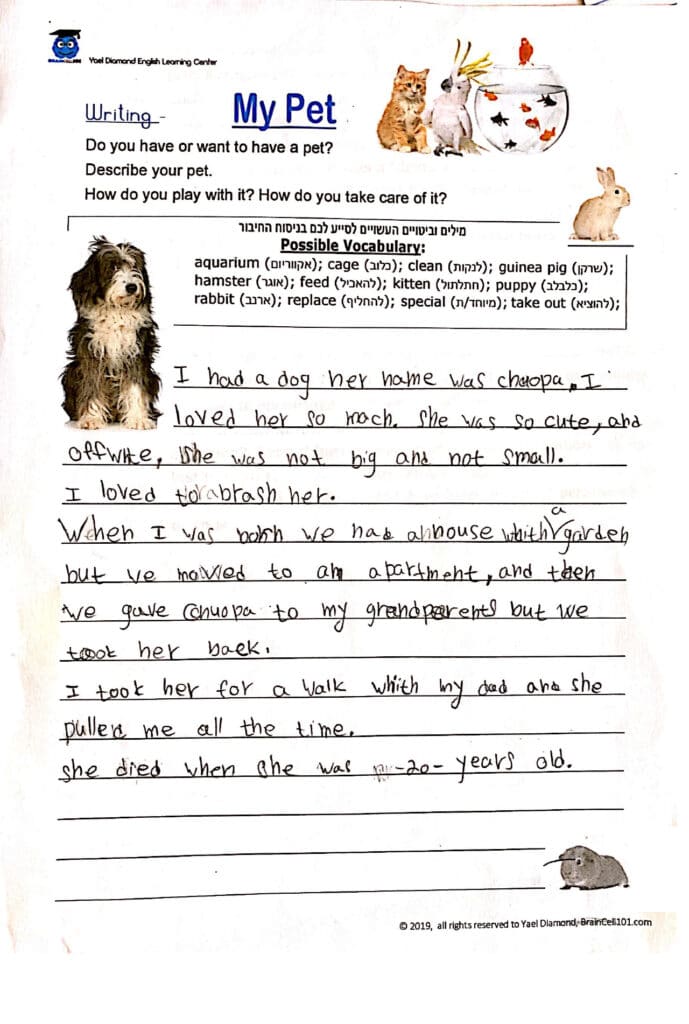 BRAINCELL101
Yael Diamond English Learning Center
Writing -
My Pet
Do you have or want to have a pet?
Describe your pet.
How do you play with it? How do you take care of it?
מילים וביטויים העשויים לסייע לכם בניסוח החיבור
Possible Vocabulary:
aquarium (אקווריום); cage (כלוב); clean (לנקות); guinea pig (שרקן);
hamster (אוגר); feed (להאכיל); kitten (חתלתול); puppy (כלבלב);
rabbit (ארנב); replace (להחליף); special (מיוחד/ת); take out (להוציא);
I had a dog her name was chuopa. I
loved her so mach. she was so cute, and
offwite, she was not big and not small.
I loved to brash her.
When I was born we had a house whith a garden
but we moved to an apartment, and then
we gave Chuopa to my grandparents but we
took her back.
I took her for a walk whith my dad and she
pulled me all the time.
she died when she was -20- years old.
© 2019, all rights reserved to Yael Diamond, BrainCell101.com